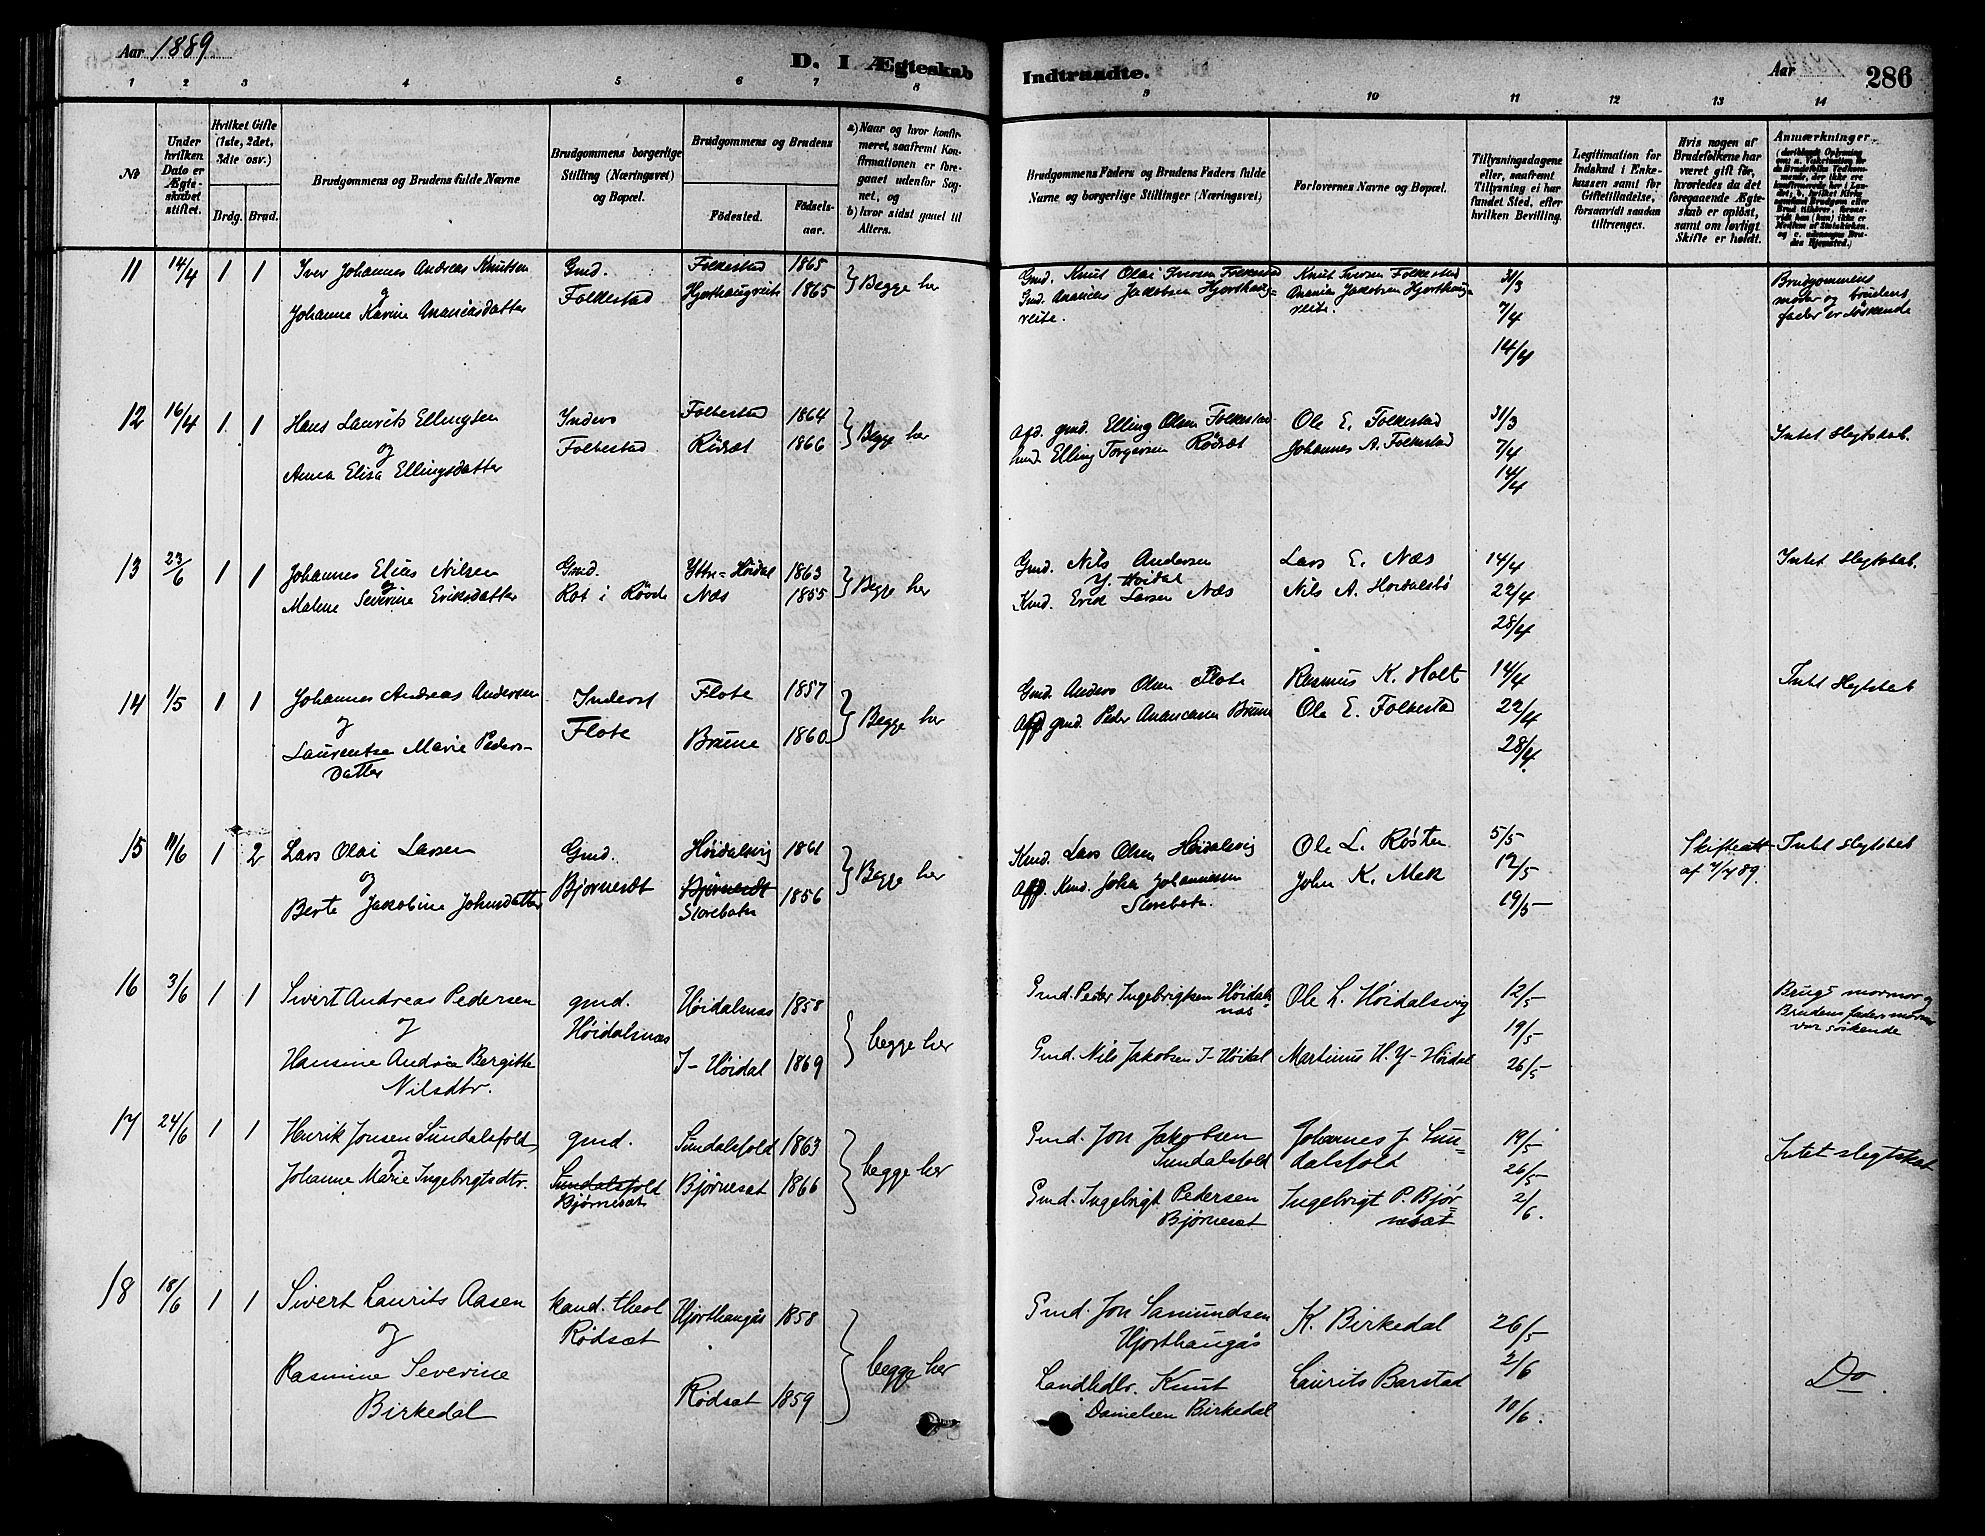 Aar 1889.
D. I Ægteskab
Indtraadte.
Aar 1889
286
1 2 3 4 5 6 7 8 9 10 11 12 13 14
No
Under hvilken Dato er Ægteskabet stiftet.
Hvilket Gifte (1ste, 2det, 3die osv.)
Brdg. Brud.
Brudgommens og Brudens fulde Navne
Brudgommens borgerlige Stilling (Næringsvei) og Bopæl.
Brudgommens og Brudens
Födested.
Födsels-aar.
a) Naar og hvor konfirmeret, saafremt Konfirmationen er foregaaet udenfor Sognet, og
b) hvor sidst gaaet til Alters.
Brudgommens Faders og Brudens Faders fulde Navne og borgerlige Stillinger (Næringsvei)
Forlovernes Navne og Bopæl.
Tillysningsdagene eller, saafremt Tillysning ei har fundet Sted, efter hvilken Bevilling.
Legitimation for Indskud i Enkekassen samt for Giftetilladelse, forsaavidt saadan tiltrænges.
Hvis nogen af Brudefolkene har været gift för, hvorledes da det foregaaende Ægteskab er oplöst, samt om lovligt Skifte er holdt.
Anmærkninger
11 14/4 1 1 Iver Johannes Andreas Knutsen
og
Johanne Karine Ananiasdatter
Gmd.
Folkestad
Folkestad 1865
Hjorthaugreite 1865
Begge her
Gmd. Knut Olai Iversen Folkestad
Gmd. Ananias Jakobsen Hjorthaug-
reite.
Knut Iversen Folkestad
Ananias Jakobsen Hjorthaug-
reite.
31/3
7/4
14/4
Brudgommens
moder og brudens
fader er søskende
12 16/4 1 1 Hans Laurits Ellingsen
og
Anna Elisa Ellingsdatter
Inders
Folkestad
Folkestad 1864
Rödsæt 1866
Begge her
Afd. gmd. Elling Olsen Folkestad
Gmd. Elling Torgersen Rödsæt
Ole E. Folkestad
Johannes A. Folkestad
31/3
7/4
14/4
Intet Slegtskab.
13 23/6 1 1 Johannes Elias Nilsen
og
Malene Severine Eriksdatter
Gmd.
Rot i Rövde
Yttre-Höidal 1863
Næs 1855
Begge her
Gmd. Nils Andersen
Y. Höidal
Kmd. Erik Larsen Næs
Lars E. Næs
Nils A. Höidalsbö
14/4
22/4
28/4
Intet Slegtskab.
14 1/5 1 1 Johannes Andreas Andersen
og
Laurentse Marie Peders-
datter
Inderst
Flote
Flote 1857
Brune 1860
Begge her
Gmd. Anders Olsen Flote
Afd gmd. Peder Ananiassen Brune
Rasmus K. Holt
Ole E. Folkestad
14/4
22/4
28/4.
Intet Slegtskab
15 11/6 1 2 Lars Olai Larsen
og
Berte Jakobine Johnsdatter
Gmd.
Bjørnesæt
Höidalsvig 1861
Bjørnesæt
Storebotn 1856
Begge her
Kmd. Lars Olsen Höidalsvig
Afd. Kmd. John Johannessen
Storebotn.
Ole L. Røsten
John K. Mek
5/5
12/5
19/5
Skifteatt
af 4/4 89.
Intet Slegtskab
16 3/6 1 1 Sivert Andreas Pedersen
og
Hansine Andréa Bergitte
Nilsdtr.
gmd.
Höidalsnæs
Höidalsnæs 1858
I-Höidal 1869
begge her
Gmd. Peder Ingebrigtsen Höidals-
næs
Gmd. Nils Jakobsen I-Höidal
Ole L. Höidalsvig
Martinus H. Y-Höidal
12/5
19/5
26/5
Brugs mormor og
Brudens faders mormor
var søskende
17 24/6 1 1 Henrik Jonsen Sundalsfold,
og
Johanne Marie Ingebrigtsdtr.
gmd.
Sundalsfold
Bjørnesæt
Sundalsfold 1863
Bjørnesæt 1866
begge her
Gmd. Jon Jakobsen
Sundalsfold
Gmd. Ingebrigt Pedersen
Bjørnesæt
Johannes J. Sun-
dalsfolt
Ingebrigt P. Bjør-
nesæt
19/5
26/5
2/6.
Intet slegtskab
18 18/6 1 1 Sivert Laurits Aasen
og
Rasmine Severine
Birkedal
kand. theol
Rødsæt
Hjorthaugås 1858
Rødsæt 1859
begge her
Gmd. Jon Samundsen
Hjorthaugås
Landhdlr. Knut
Danielsen Birkedal
K. Birkedal
Laurits Barstad
26/5
2/6
10/6.
Do.